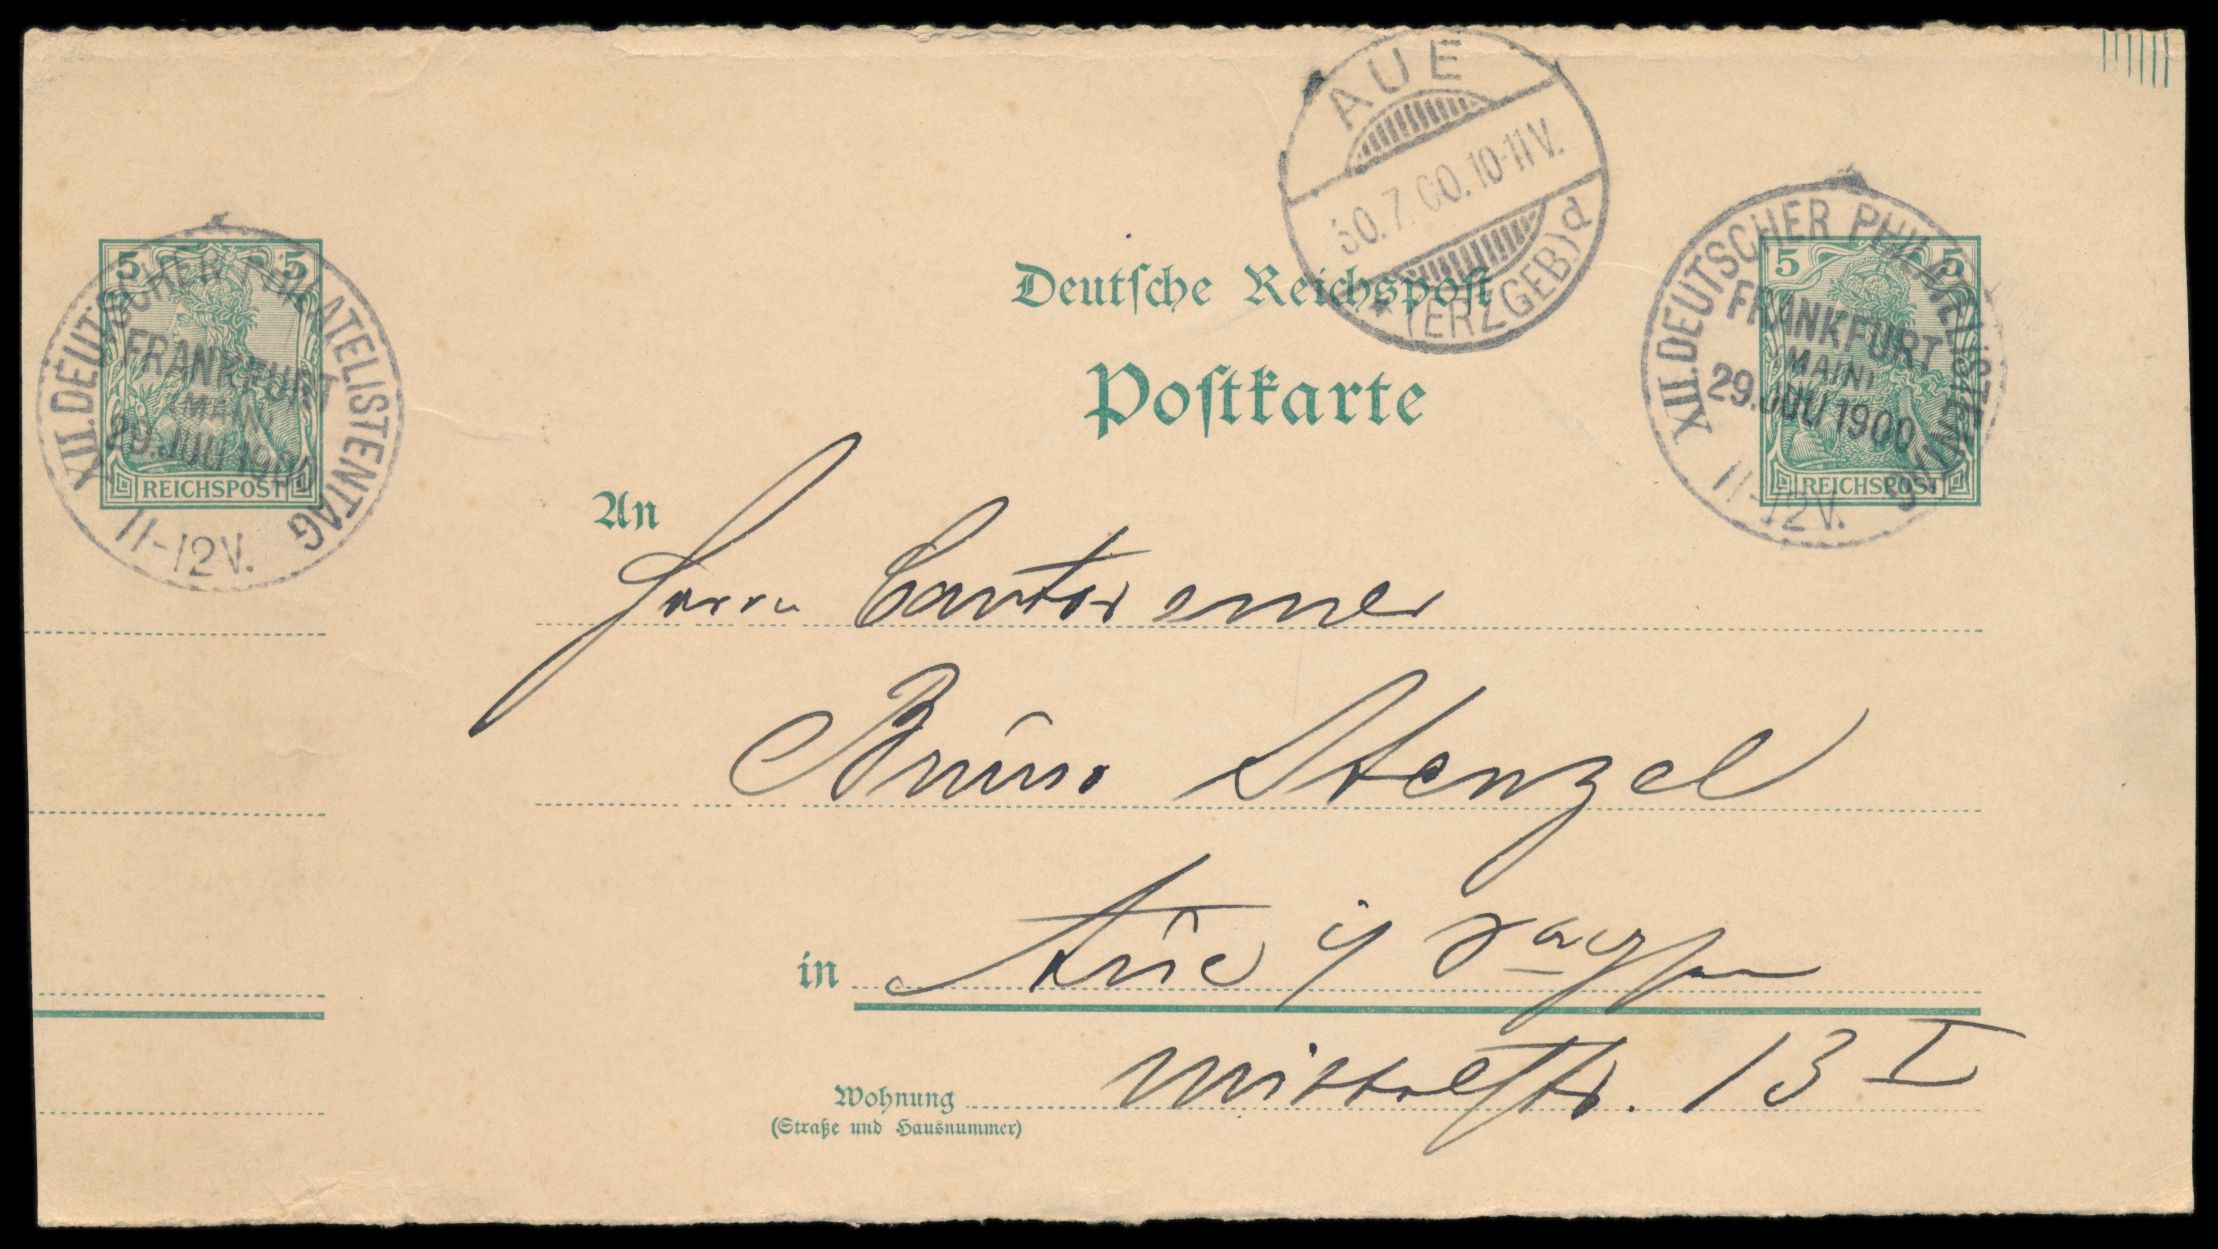 AUE
30.7.00.10-11V.
* (ERZGEB) d
5 5
REICHSPOST
XII. DEUTSCHER PHILATELISTENTAG
FRANKFURT
(MAIN)
29.JULI 1900
11-12V.
5 5
REICHSPOST
XII. DEUTSCHER PHILATELISTENTAG
FRANKFURT
(MAIN)
29.JULI 1900
11-12V.
Deutsche Reichspost
Postkarte
An
Herrn Cantor emer
Bruno Stenzel
in Aue i/ Sachsen
Mittelstr. 13 I
Wohnung
(Straße und Hausnummer)